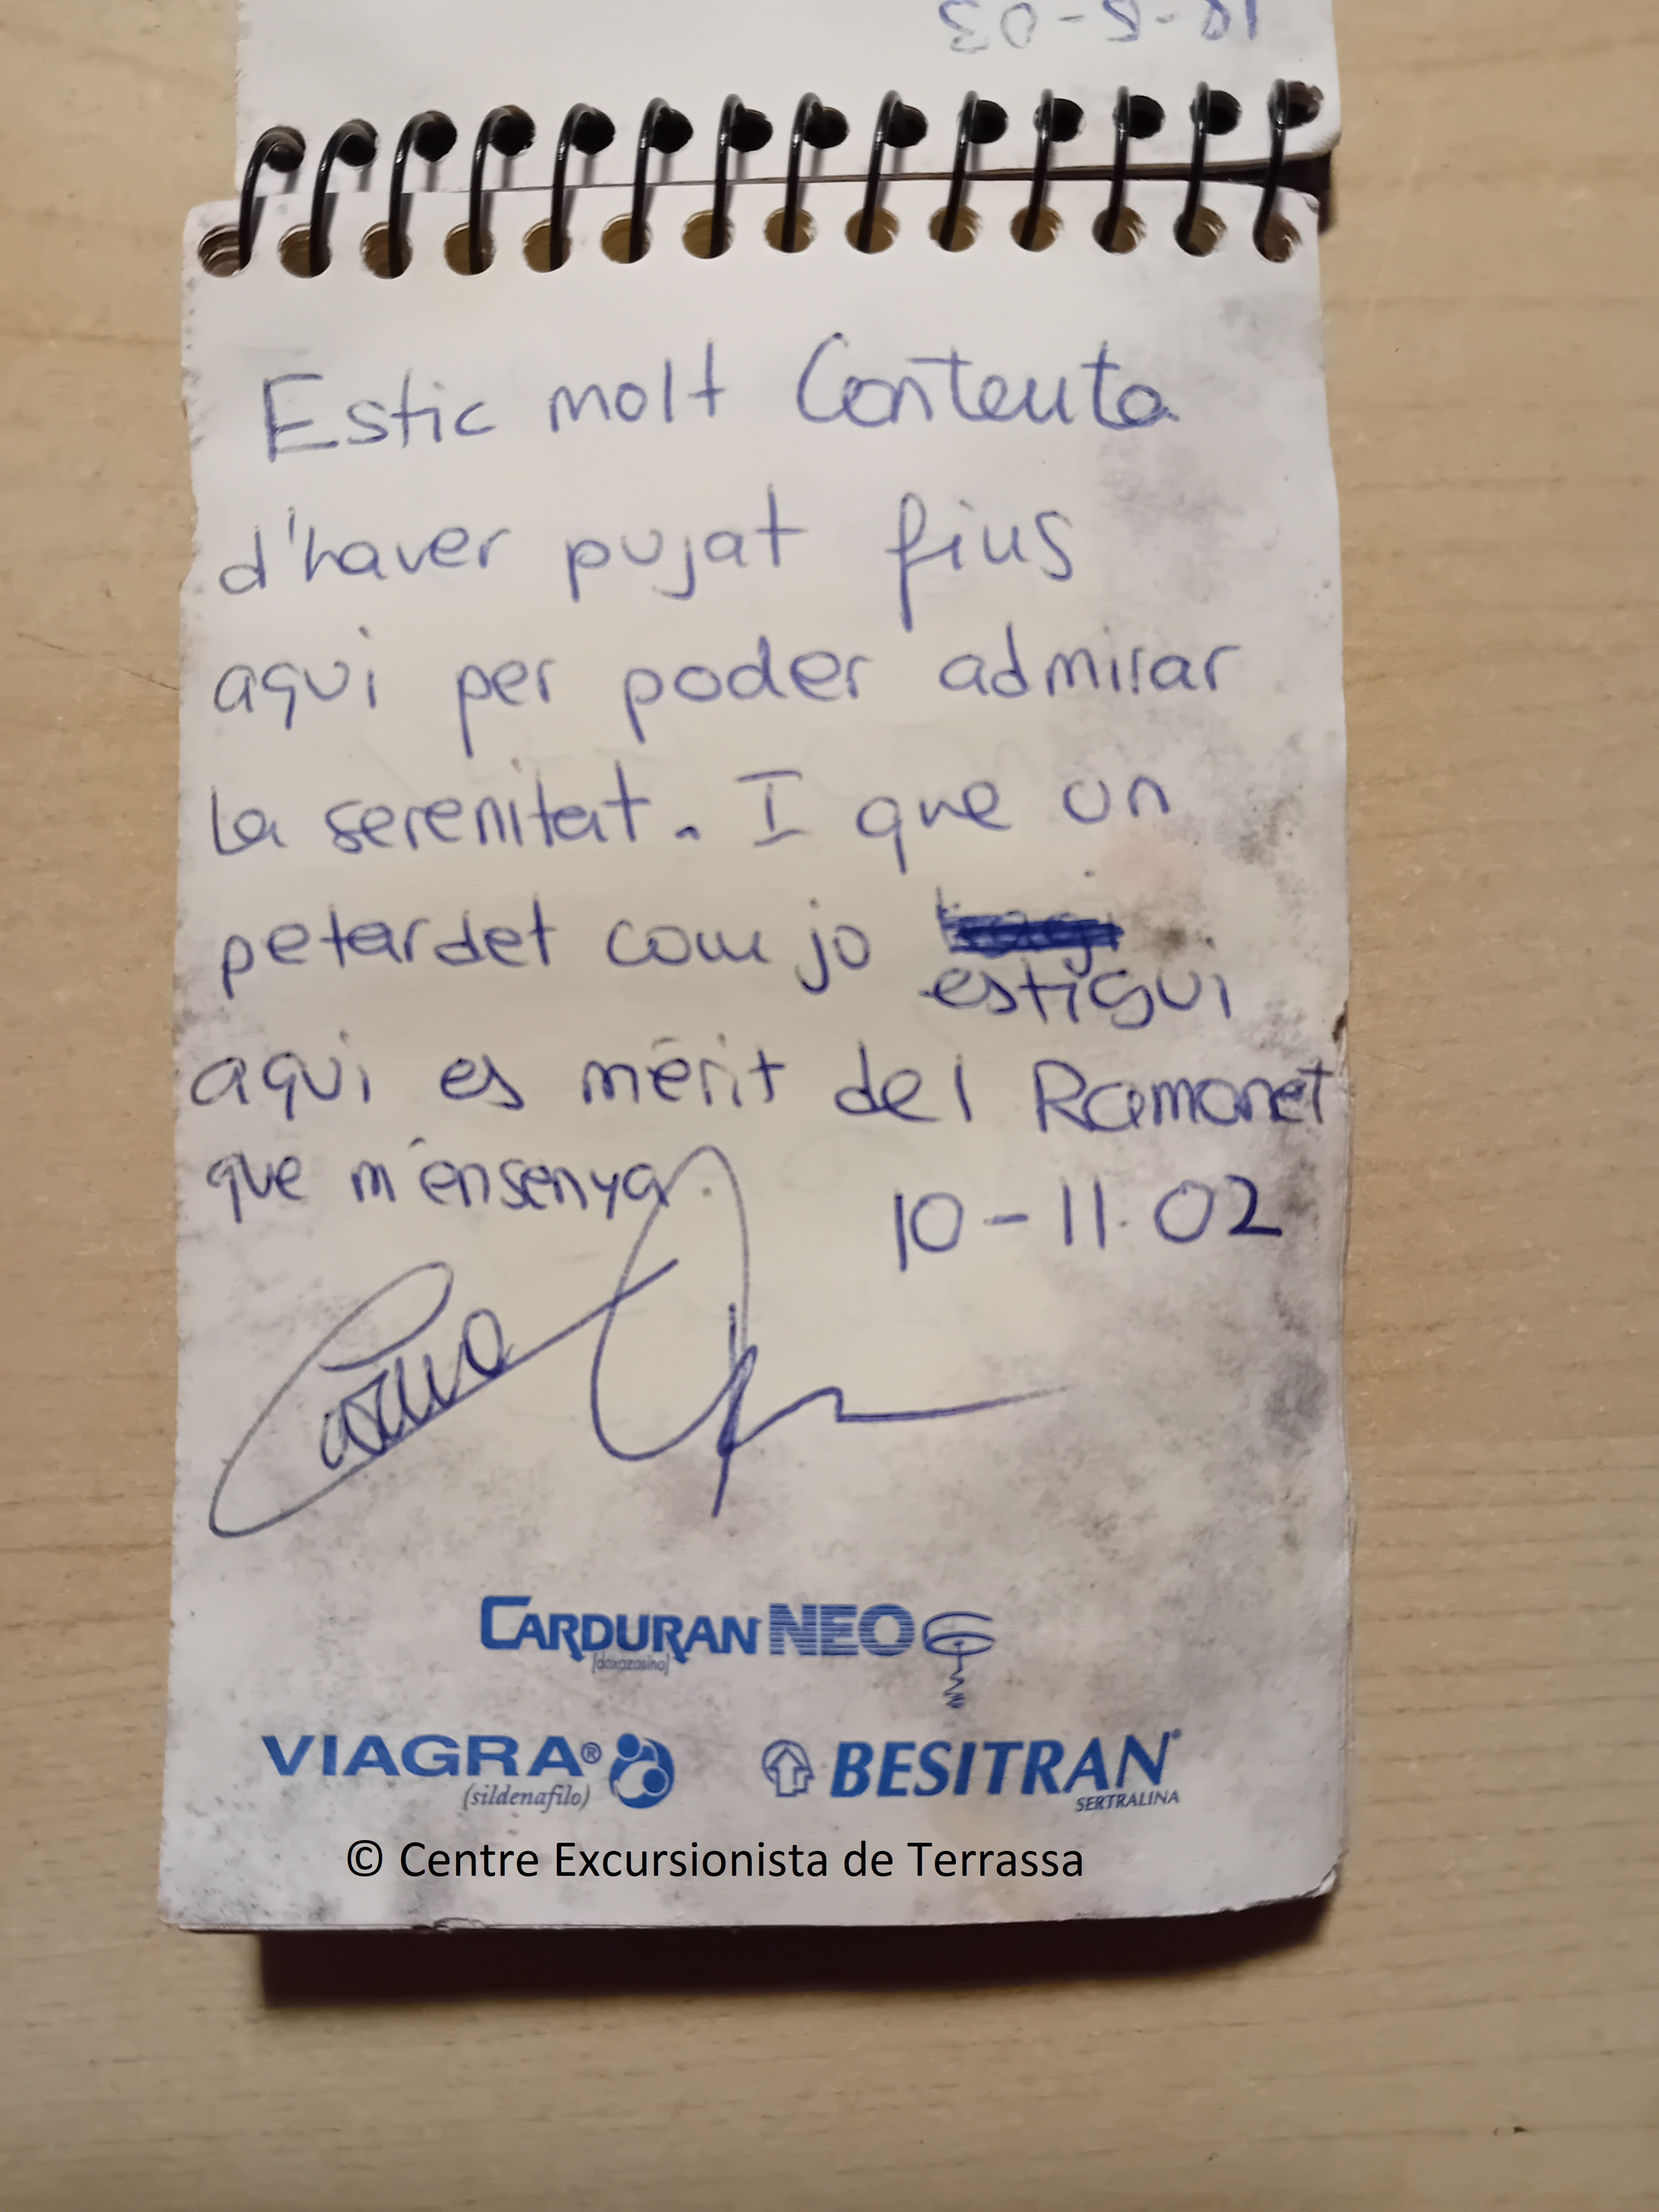 18-5-03
Estic molt Contenta
d'haver pujat fins
aqui per poder admirar
la serenitat. I que un
petardet com jo
estigui
aqui es mèrit del Ramonet
que m'ensenya.
10-11-02
CARDURAN NEO
[doxazosina]
VIAGRA®
(sildenafilo)
BESITRAN®
SERTRALINA
© Centre Excursionista de Terrassa